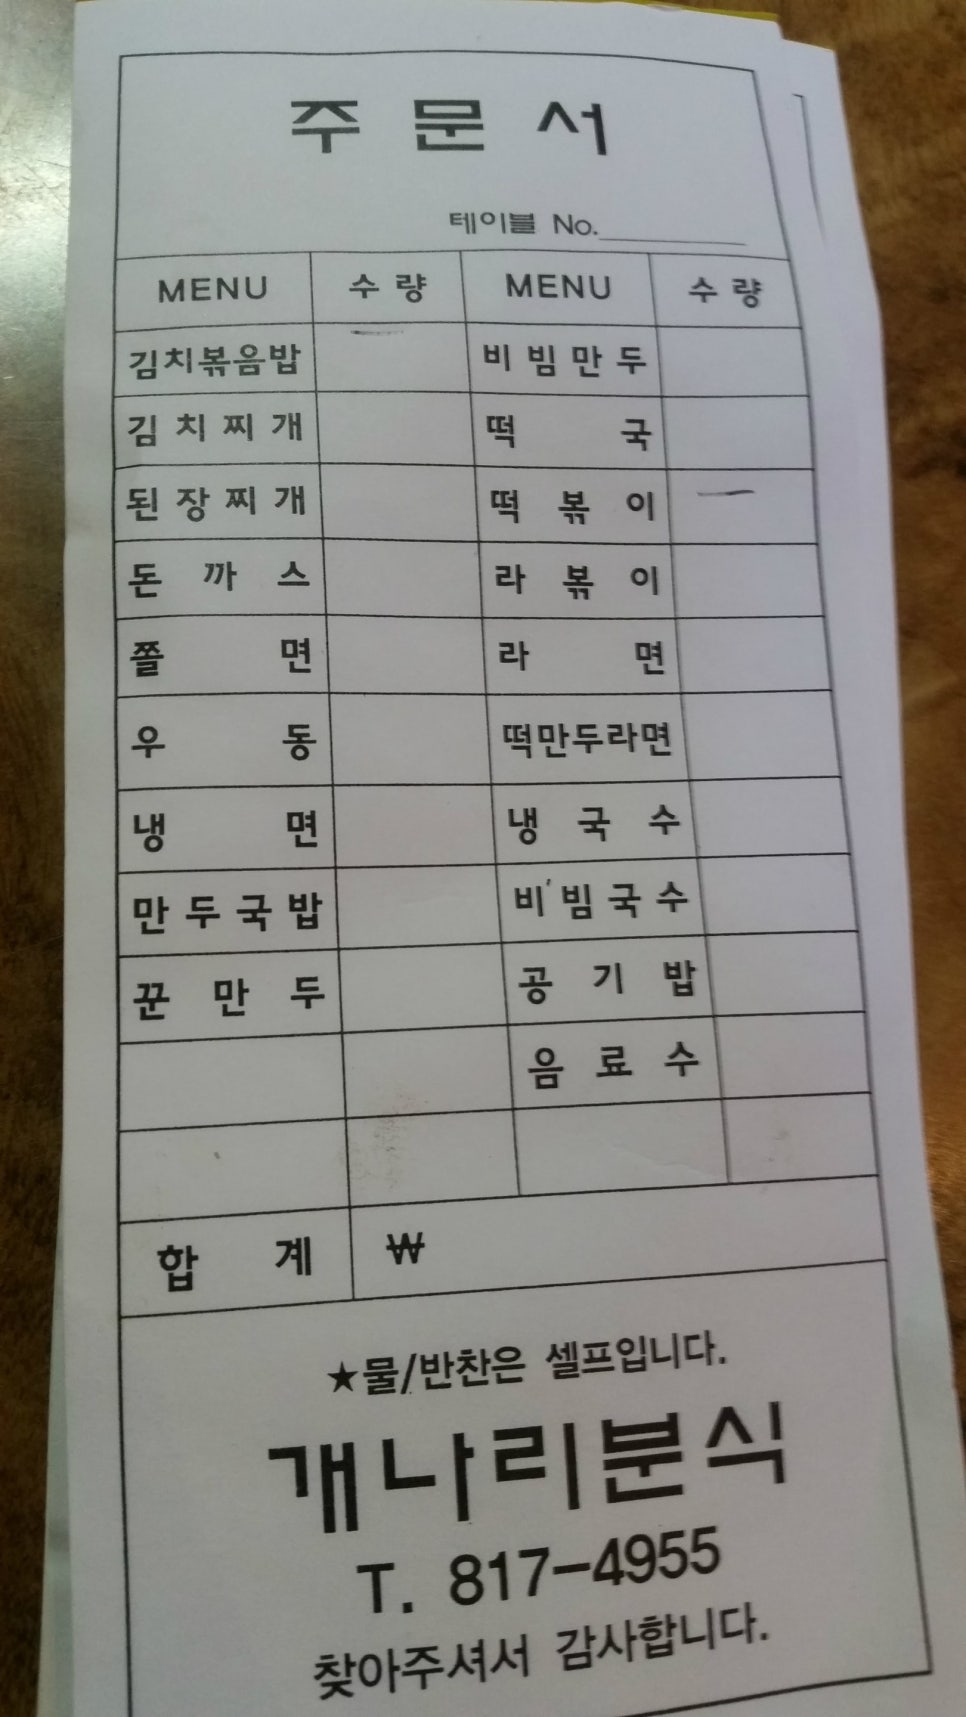 주 문 서
테이블 No.
MENU 수 량 MENU 수 량
김치볶음밥 비 빔 만 두
김 치 찌 개 떡 국
된 장 찌 개 떡 볶 이
돈 까 스 라 볶 이
쫄 면 라 면
우 동 떡만두라면
냉 면 냉 국 수
만 두 국 밥 비 빔 국 수
꾼 만 두 공 기 밥
음 료 수
합 계 ₩
★물/반찬은 셀프입니다.
개나리분식
T. 817-4955
찾아주셔서 감사합니다.